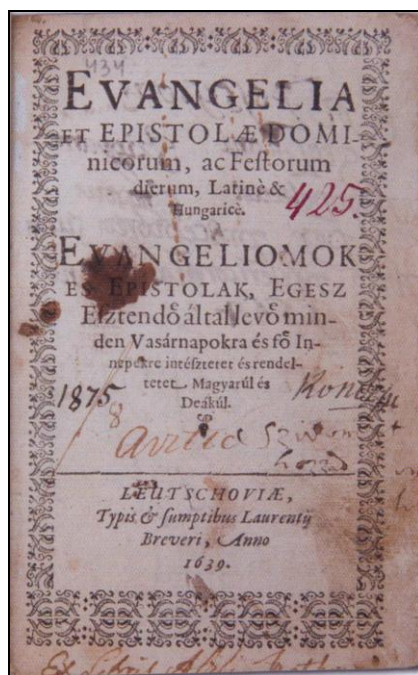 434
EVANGELIA
ET EPISTOLÆ DOMI-
nicorum, ac Festorum
dierum, Latinè &
Hungaricè.
425.
EVANGELIOMOK
ES EPISTOLAK, EGESZ
Esztendő által levő min-
den Vasárnapokra és fő In-
nepekre intésztetet és rendel-
tetet Magyarúl és
Deákúl.
1875
8
LEUTSCHOVIÆ,
Typis & sumptibus Laurentij
Breveri, Anno
1639.
Ex Libris